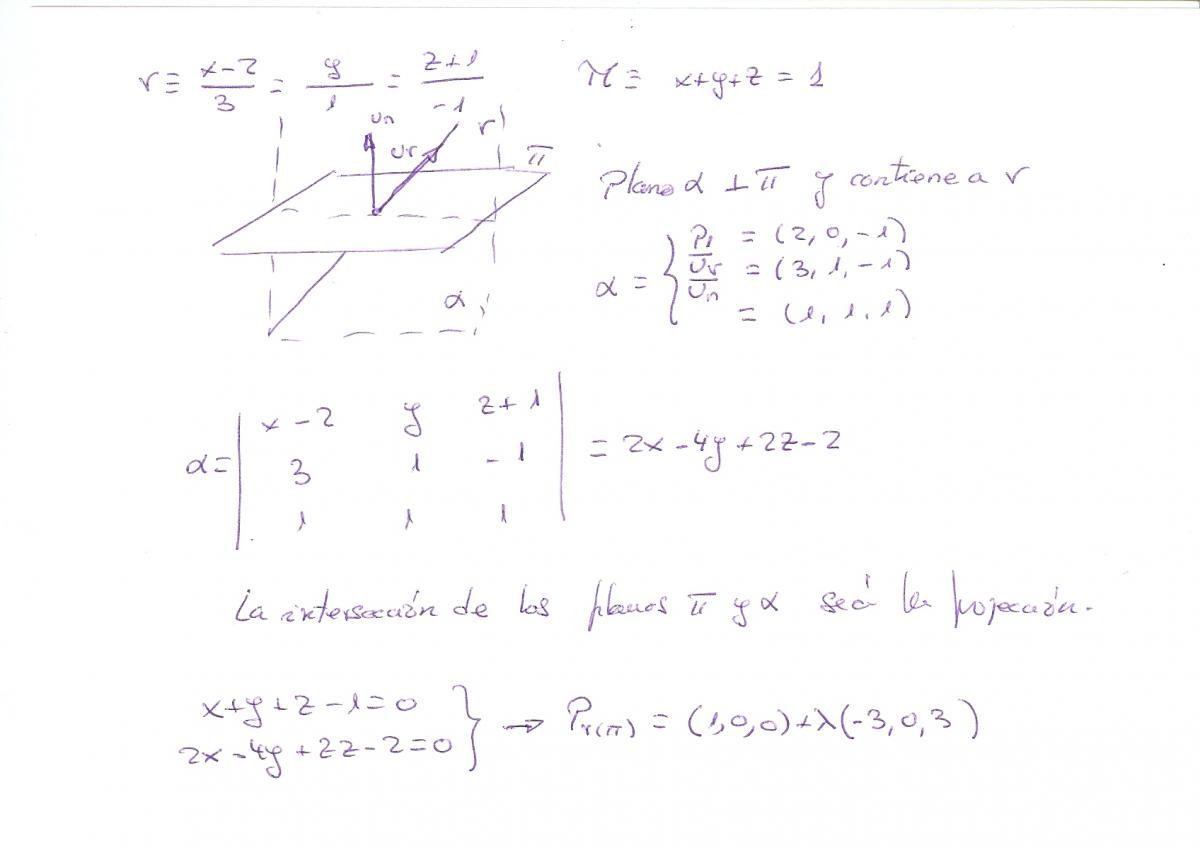 r ≡ x-2/3 = y/1 = z+1/-1    π ≡ x+y+z = 1
un
ur
r
π
α
Plano α ⊥ π y contiene a r
α = { P1 = (2, 0, -1)
ur = (3, 1, -1)
un = (1, 1, 1)
α = | x-2 y z+1 | = 2x-4y+2z-2
3 1 -1
1 1 1
La intersección de los planos π y α será la proyección.
x+y+z-1=0
2x-4y+2z-2=0 } → Pr(π) = (1,0,0)+λ(-3,0,3)